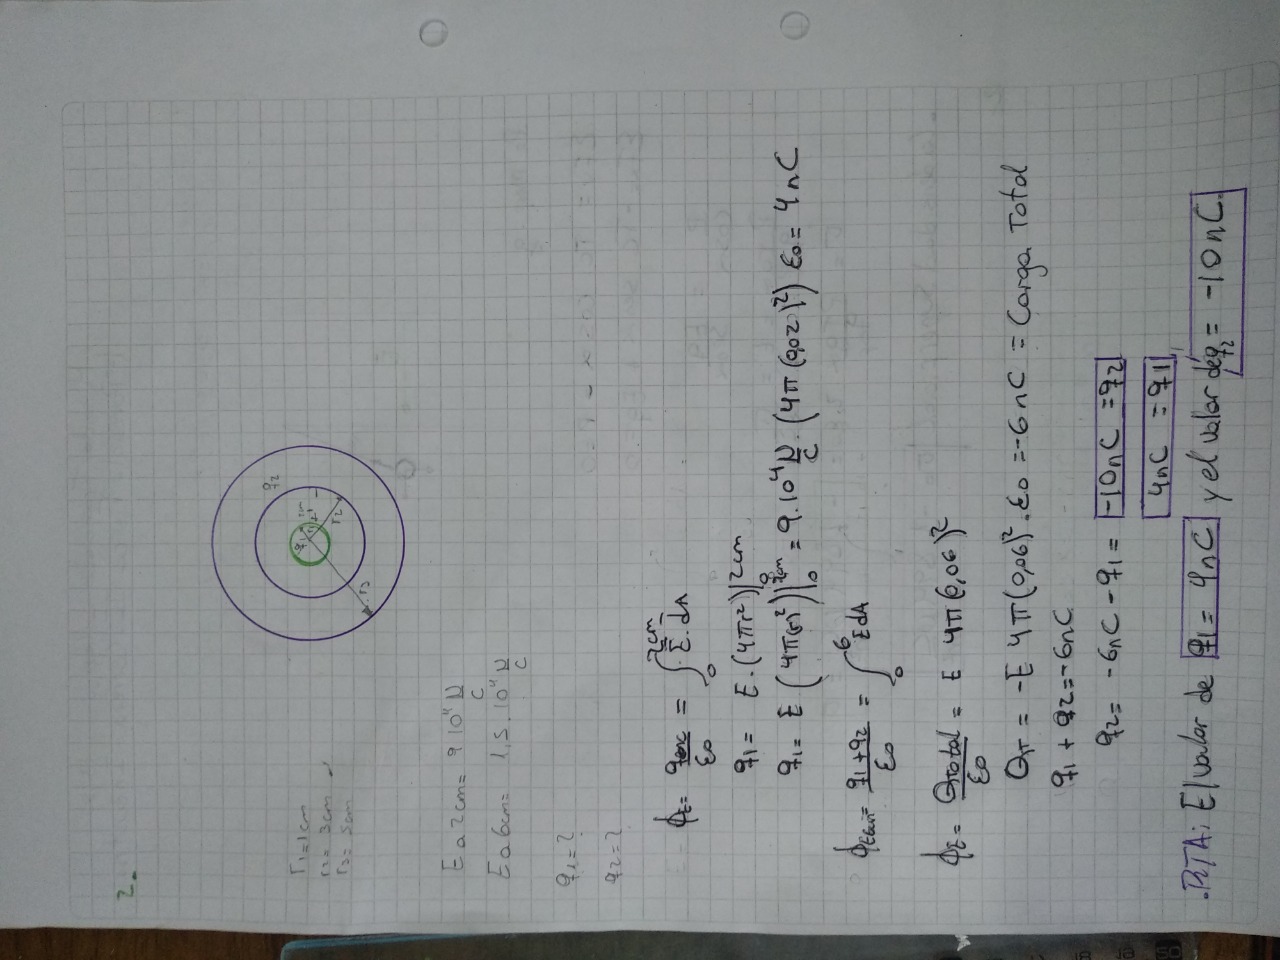 2.
r1=1cm
r2=3cm
r3=5cm
q2
q1
2cm
r1
r2
r3
E a 2cm= 9 10⁴ N/C
E a 6cm= 1,5.10⁴ N/C
q1=?
q2=?
ϕE= qenc/ε0 = ∫₀^2cm E.dA
q1= E.(4πr²)|₀^2cm
q1= E (4π(r)²)|₀^2cm = 9.10⁴ N/C . (4π(0,02)²) ε0= 4nC
ϕE6cm= q1+q2/ε0 = ∫₀^6 EdA
ϕE= QTotal/ε0 = E 4π(0,06)²
QT= -E 4π(0,06)².ε0 =-6nC = Carga Total
q1 + q2=-6nC
q2= -6nC-q1= -10nC =q2
4nC =q1
.RTA: El valor de q1= 4nC y el valor de q2= -10nC.